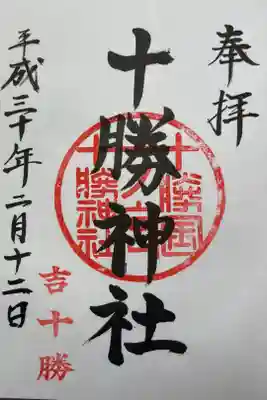 奉拝
十勝神社
十勝国
十勝神社
吉十勝
平成三十年二月十二日